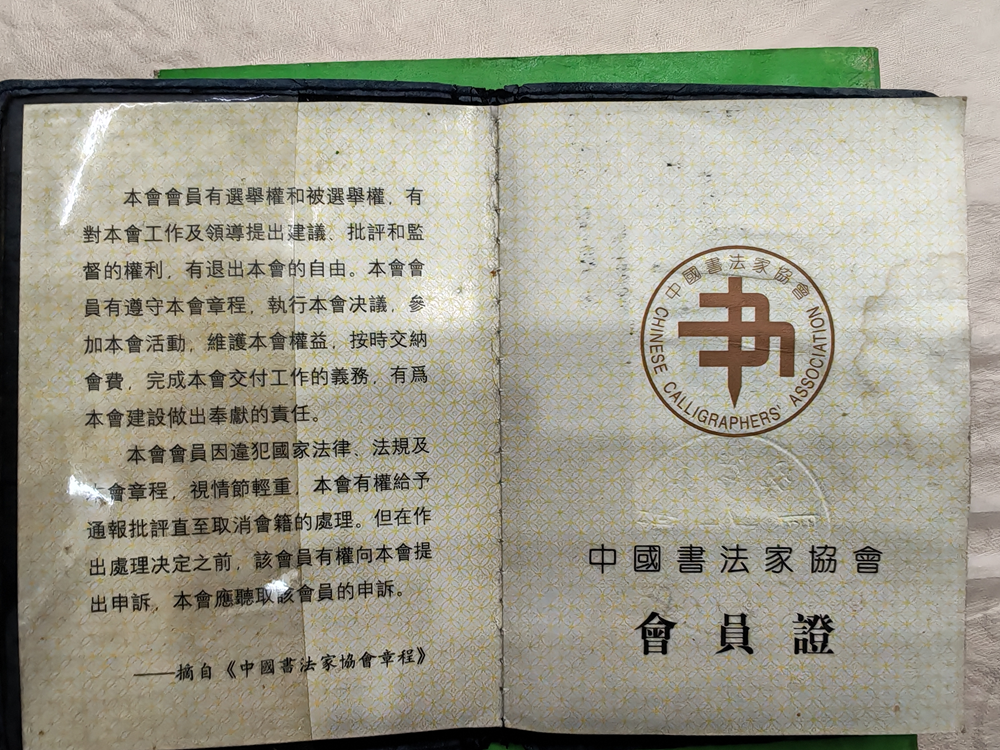 本會會員有選舉權和被選舉權，有
對本會工作及領導提出建議、批評和監
督的權利，有退出本會的自由。本會會
員有遵守本會章程，執行本會決議，參
加本會活動，維護本會權益，按時交納
會費，完成本會交付工作的義務，有爲
本會建設做出奉獻的責任。
本會會員因違犯國家法律、法規及
本會章程，視情節輕重，本會有權給予
通報批評直至取消會籍的處理。但在作
出處理決定之前，該會員有權向本會提
出申訴，本會應聽取該會員的申訴。
——摘自《中國書法家協會章程》
中國書法家協會
CHINESE CALLIGRAPHERS' ASSOCIATION
中國書法家協會
會員證